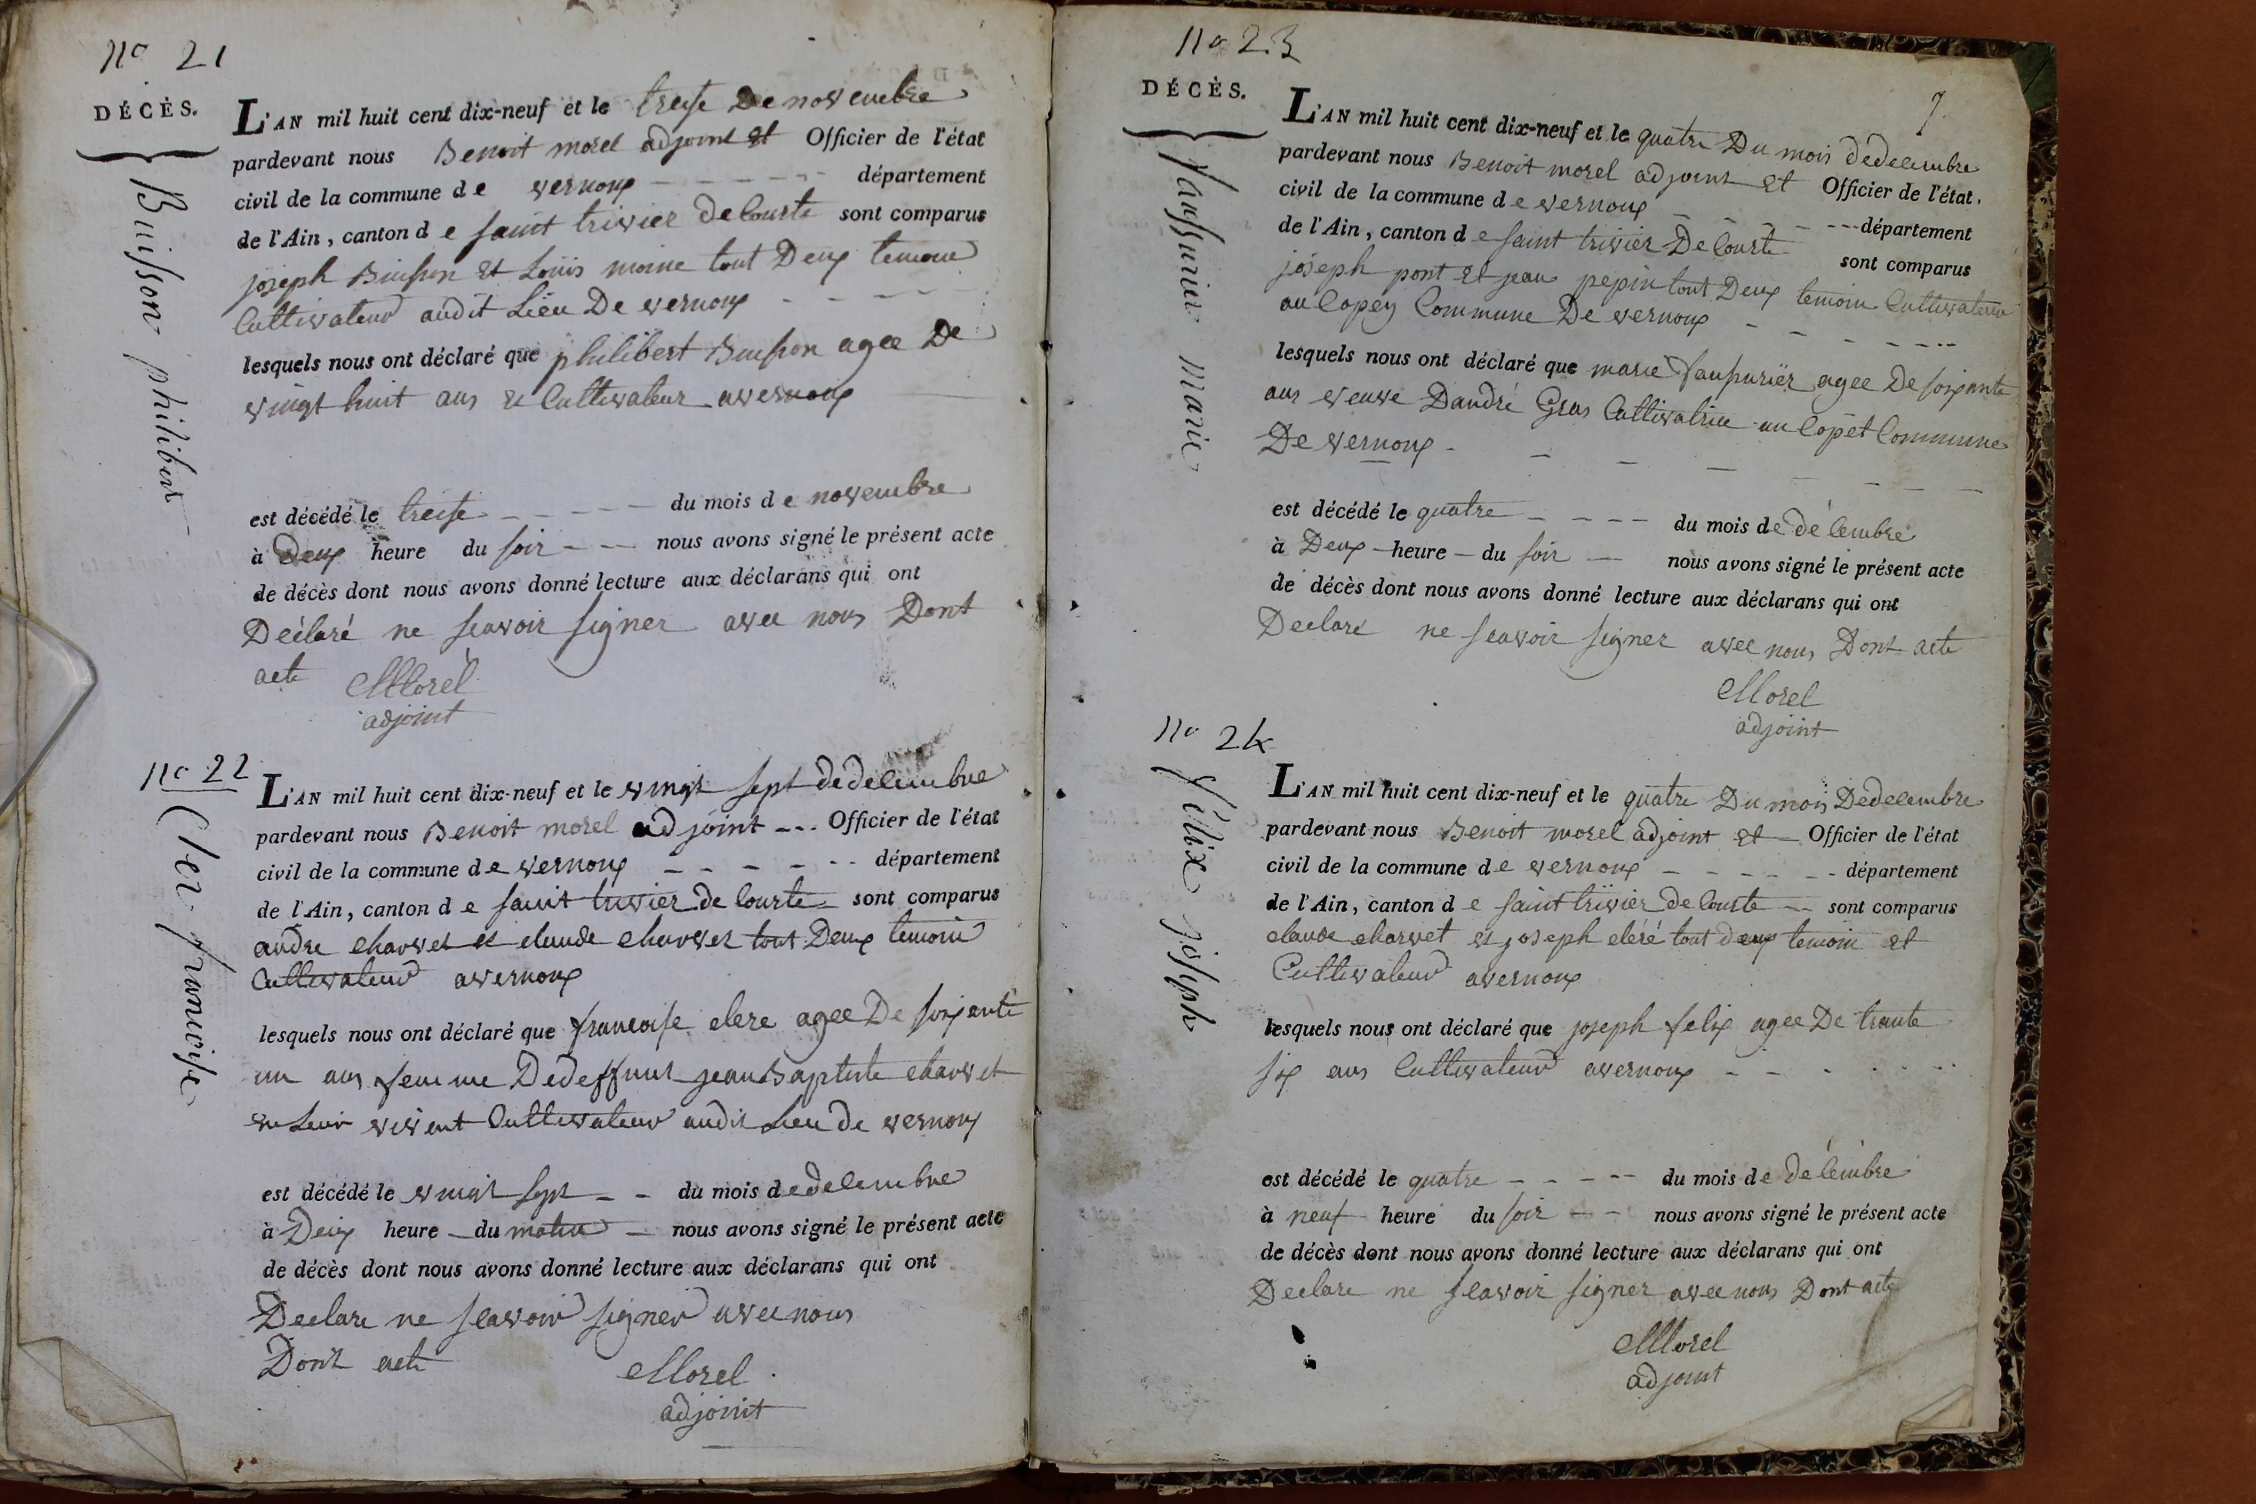 no 21
DÉCÈS.
Buisson philibert
L'AN mil huit cent dix-neuf et le treise De novembre
pardevant nous Benoit morel adjoint et Officier de l'état
civil de la commune de vernoux - - - - - département
de l'Ain, canton de saint trivier de Courte sont comparus
joseph Buisson et Louis moine tout Deux temoin
Cultivateur audit Lieu De vernoux - - - -
lesquels nous ont déclaré que philibert Buisson agee De
vingt huit ans et Cultivateur avernoux
est décédé le treise - - - - - du mois de novembre
à Deux heure du soir - - nous avons signé le présent acte
de décès dont nous avons donné lecture aux déclarans qui ont
Déclaré ne scavoir signer avec nous Dont
acte Morel
adjoint
no 22
Clere francoise
L'AN mil huit cent dix-neuf et le vingt sept de decembre
pardevant nous Benoit morel adjoint - - - Officier de l'état
civil de la commune de vernoux - - - - - - département
de l'Ain, canton de saint trivier de Courte sont comparus
andre charvet et claude charvet tout Deux temoin
Cultivateur avernoux
lesquels nous ont déclaré que francoise clere agee De soixante
un ans femme Dedeffunt jean Baptiste charvet
vivent Cultivateur audit Lieu de vernoux
est décédé le vingt sept - - du mois de decembre
à Deux heure - du matin - nous avons signé le présent acte
de décès dont nous avons donné lecture aux déclarans qui ont
Declare ne scavoir signer avec nous
Dont acte Morel
adjoint
no 23
7.
DÉCÈS.
faussurier marie
L'AN mil huit cent dix-neuf et le quatre Du mois dedecembre
pardevant nous Benoit morel adjoint et Officier de l'état
civil de la commune de vernoux - - - - - département
de l'Ain, canton de saint trivier De Courte sont comparus
joseph pont et jean pepin tout Deux temoin Cultivateur
au Copey Commune De vernoux - - - - - -
lesquels nous ont déclaré que marie faussurier agee De soixante
ans veuve Dandré Gras Cultivatrice au Copet Commune
De vernoux - - - - - - -
est décédé le quatre - - - - du mois de décembre
à Deux - heure - du soir - nous avons signé le présent acte
de décès dont nous avons donné lecture aux déclarans qui ont
Declaré ne scavoir signer avec nous Dont acte
Morel
adjoint
no 24
félix joseph
L'AN mil huit cent dix-neuf et le quatre Du mois Dedecembre
pardevant nous Benoit morel adjoint et - Officier de l'état
civil de la commune de vernoux - - - - - - département
de l'Ain, canton de saint trivier de Courte - - sont comparus
claude charvet et joseph cleré tout deux temoin et
Cultivateur avernoux
lesquels nous ont déclaré que joseph felix agee De trante
six ans Cultivateur avernoux - - - - - -
est décédé le quatre - - - - - du mois de décembre
à neuf heure du soir - - nous avons signé le présent acte
de décès dont nous avons donné lecture aux déclarans qui ont
Declare ne scavoir signer avec nous Dont acte
Morel
adjoint